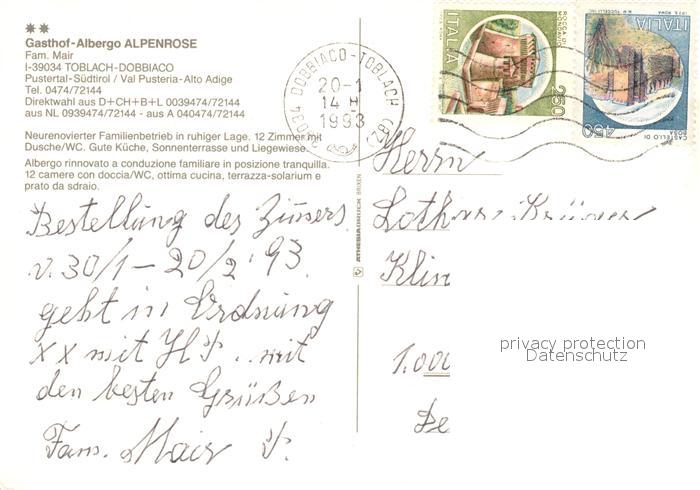 Gasthof-Albergo ALPENROSE
Fam. Mair
I-39034 TOBLACH-DOBBIACO
Pustertal-Südtirol / Val Pusteria-Alto Adige
Tel. 0474/72144
Direktwahl aus D+CH+B+L 0039474/72144
aus NL 0939474/72144 - aus A 040474/72144
Neurenovierter Familienbetrieb in ruhiger Lage. 12 Zimmer mit
Dusche/WC. Gute Küche, Sonnenterrasse und Liegewiese.
Albergo rinnovato a conduzione familiare in posizione tranquilla.
12 camere con doccia/WC, ottima cucina, terrazza-solarium e
prato da sdraio.
Bestellung des Zimmers
v. 30/1 - 20/2 '93
geht in Ordnung
XX mit HP. mit
den besten Grüßen
Fam. Mair
ATHESIADRUCK BRIXEN
39034 DOBBIACO-TOBLACH (BZ)
20-1
14 H
1993
ITALIA
250
ITALIA
450
CASTELLO DI
Herrn
Lothar
Klin
1.000
Be
privacy protection
Datenschutz